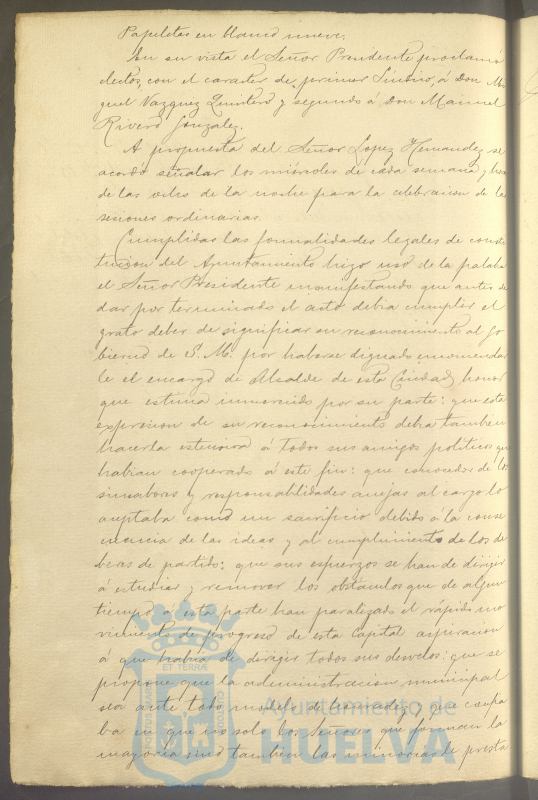 Papeletas en blanco nueve.
En su vista el Señor Presidente proclamó
electos, con el caracter de primer Sindico, á Don Mi
guel Vazquez Quintero y segundo á Don Manuel
Rivero Gonzalez.
A propuesta del Señor Lopez Hernandez se
acordo señalar los miércoles de cada semana y hora
de las ocho de la noche para la celebracion de las
sesiones ordinarias.
Cumplidas las formalidades legales de consti
tucion del Ayuntamiento hizo uso de la palabra
el Señor Presidente manifestando que antes de
dar por terminado el acto debia cumplir el
grato deber de significar su reconocimiento al Go
bierno de S. M. por haberse dignado encomendar
le el encargo de Alcalde de esta Ciudad, honor
que estima inmerecido por su parte: que esta
expresion de su reconocimiento debia tambien
hacerla estensiva á todos sus amigos politicos que
habian cooperado á este fin: que conocedor de los
sinsabores y responsabilidades anejas al cargo lo
aceptaba como un sacrificio debido á la conse
cuencia de las ideas y al cumplimiento de los de
beres de partido: que sus esfuerzos se han de dirijir
á estudiar y remover los obstáculos que de algun
tiempo á esta parte han paralizado el rápido mo
vimiento de progreso de esta Capital aspiracion
á que habia de dirijir todos sus desvelos: que se
propone que la administracion municipal
sea ante todo modelo de honradez y que confia
ba en que no solo los Señores que forman la
mayoria sino tambien las minorias le presta
Ayuntamiento de
HUELVA